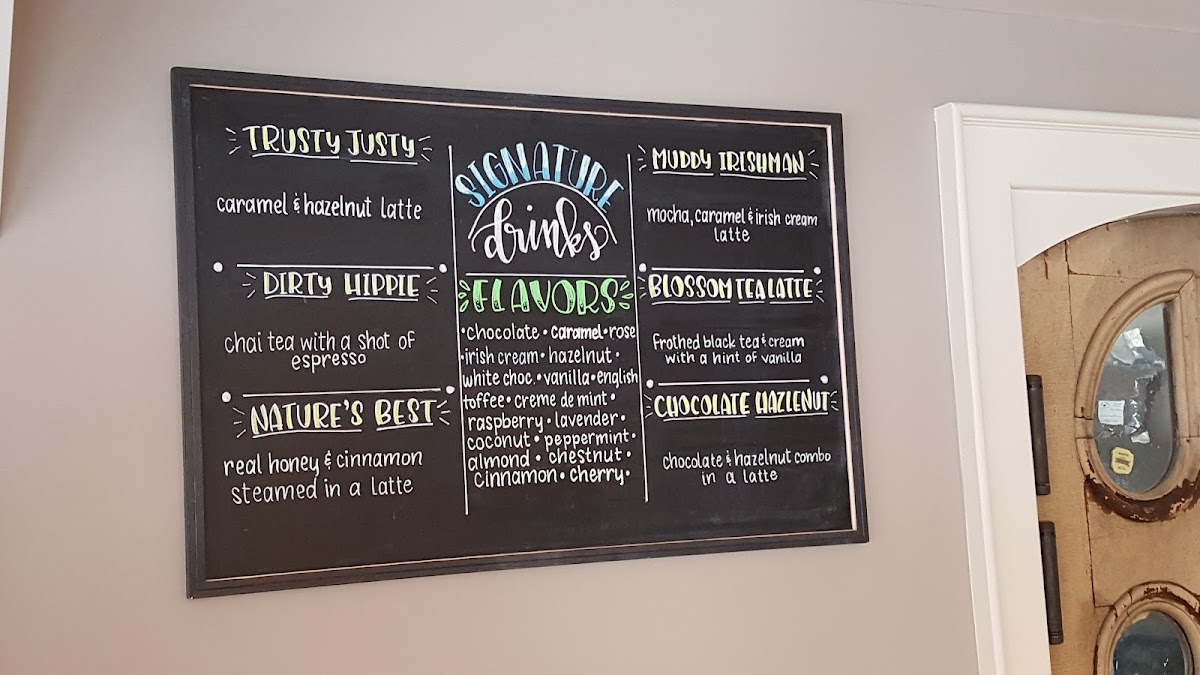 TRUSTY JUSTY
caramel & hazelnut latte
DIRTY HIPPIE
chai tea with a shot of
espresso
NATURE'S BEST
real honey & cinnamon
steamed in a latte
SIGNATURE
drinks
FLAVORS
•chocolate • caramel • rose
•irish cream • hazelnut •
white choc. • vanilla • english
toffee • creme de mint •
raspberry • lavender •
coconut • peppermint •
almond • chestnut •
cinnamon • cherry •
MUDDY IRISHMAN
mocha, caramel & irish cream
latte
BLOSSOM TEA LATTE
frothed black tea & cream
with a hint of vanilla
CHOCOLATE HAZLENUT
chocolate & hazelnut combo
in a latte